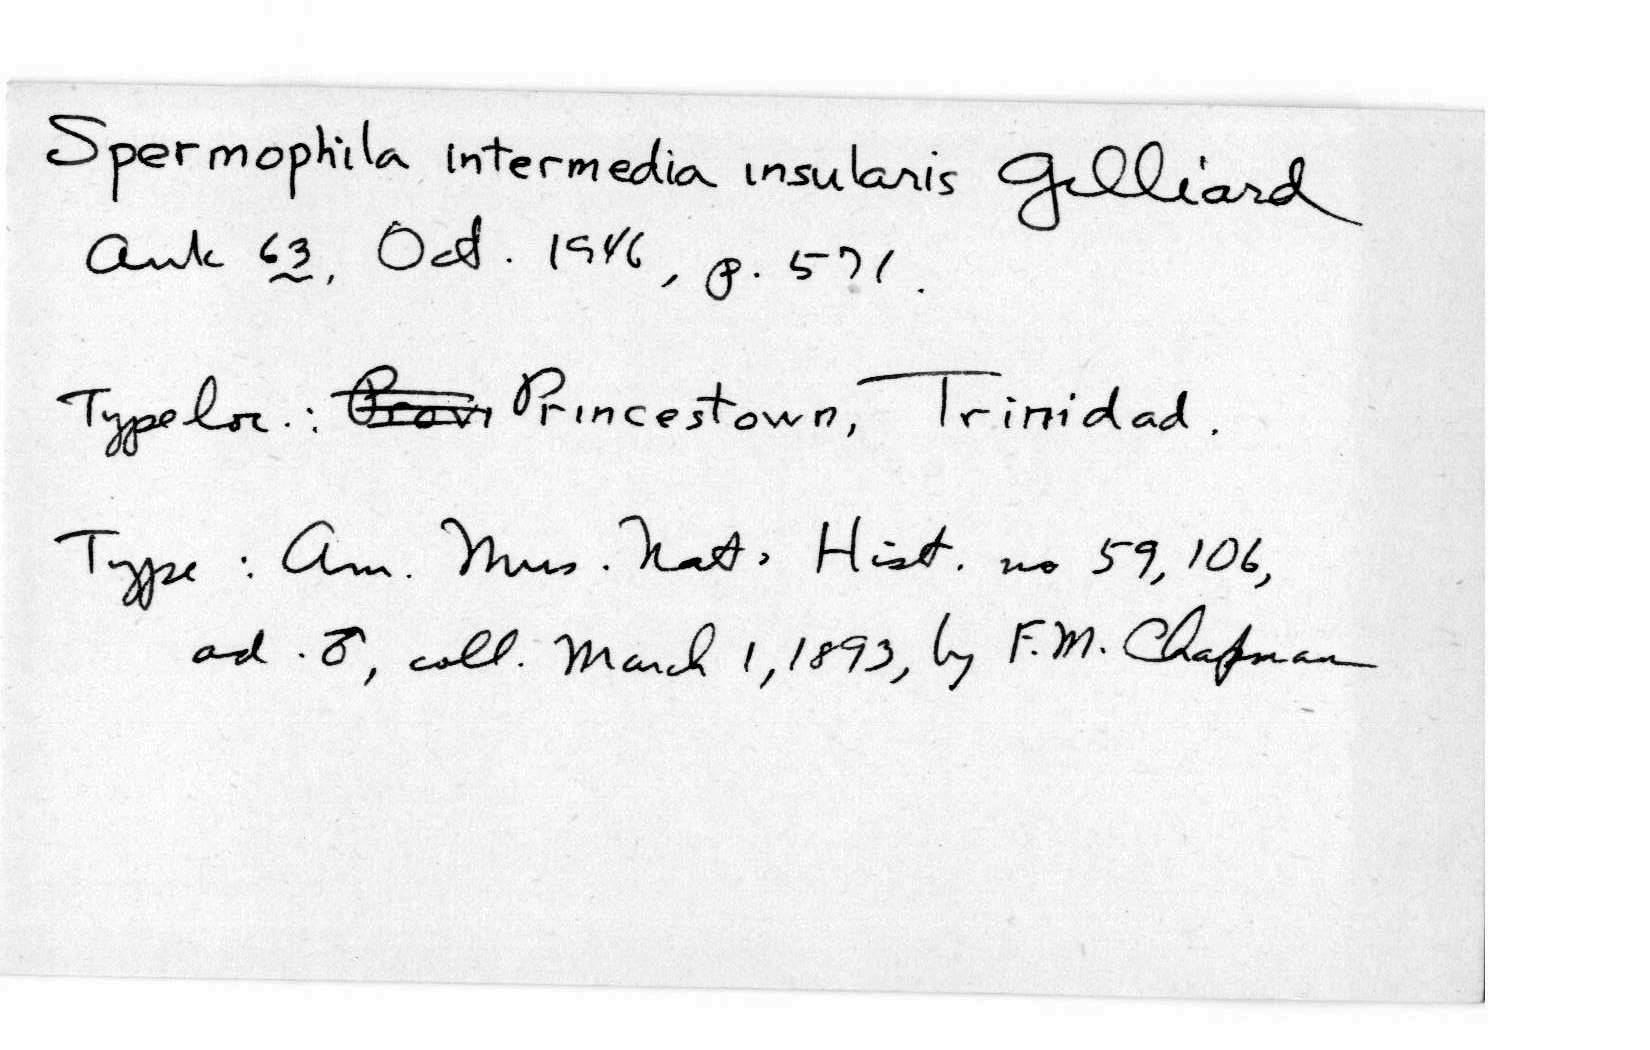 Spermophila intermedia insularis Gilliard
Auk 63, Oct. 1946, p. 571.
Type loc.: Princestown, Trinidad.
Type : Am. Mus. Nat. Hist. no 59,106,
ad. ♂, coll. March 1, 1893, by F.M. Chapman